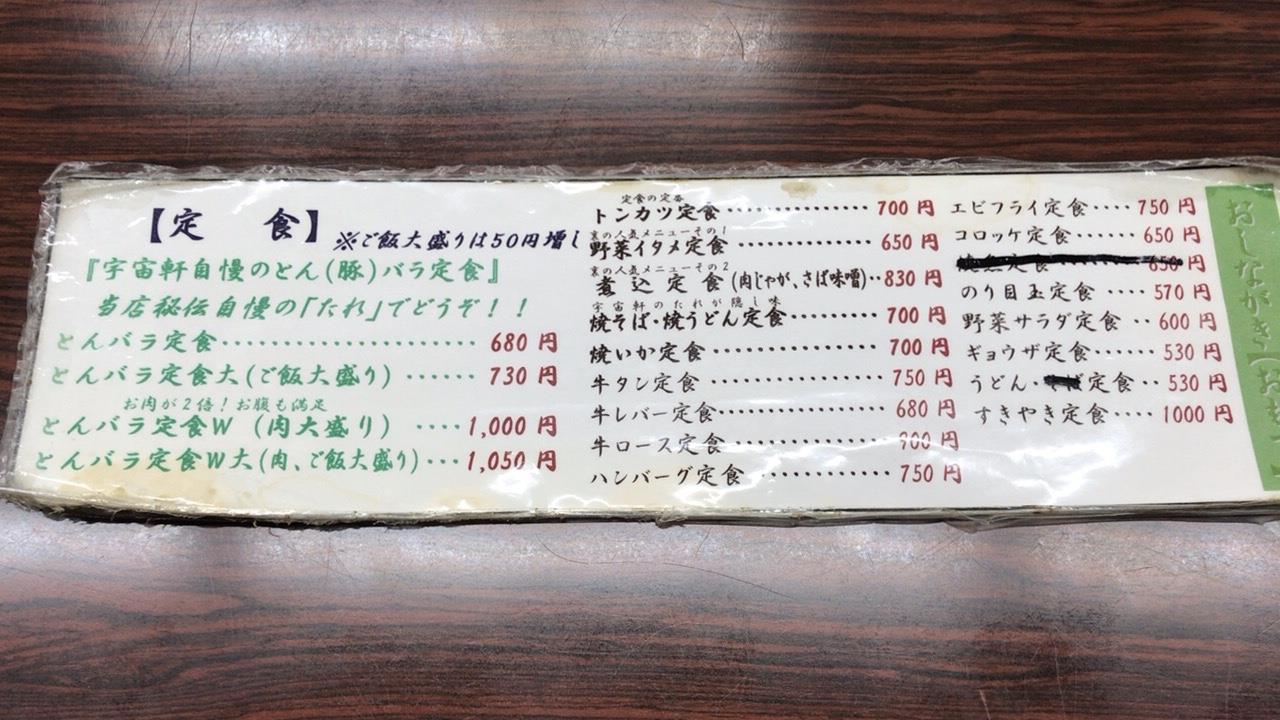 【定 食】
※ご飯大盛りは50円増し
『宇宙軒自慢のとん(豚)バラ定食』
当店秘伝自慢の「たれ」でどうぞ!!
とんバラ定食……………………680円
とんバラ定食大(ご飯大盛り)……730円
お肉が2倍!お腹も満足
とんバラ定食W (肉大盛り) ‥‥1,000円
とんバラ定食W大(肉、ご飯大盛り)…1,050円
定食の定番
トンカツ定食……………700円
裏の人気メニューその1
野菜イタメ定食……………650円
裏の人気メニューその2
煮込定食(肉じゃが、さば味噌)‥830円
宇宙軒のたれが隠し味
焼そば・焼うどん定食………700円
焼いか定食………………700円
牛タン定食………………750円
牛レバー定食……………680円
牛ロース定食……………900円
ハンバーグ定食…………750円
エビフライ定食‥‥750円
コロッケ定食……650円
定食………650円
のり目玉定食‥‥570円
野菜サラダ定食‥600円
ギョウザ定食……530円
うどん・そば定食‥530円
すきやき定食‥‥1000円
おしながき